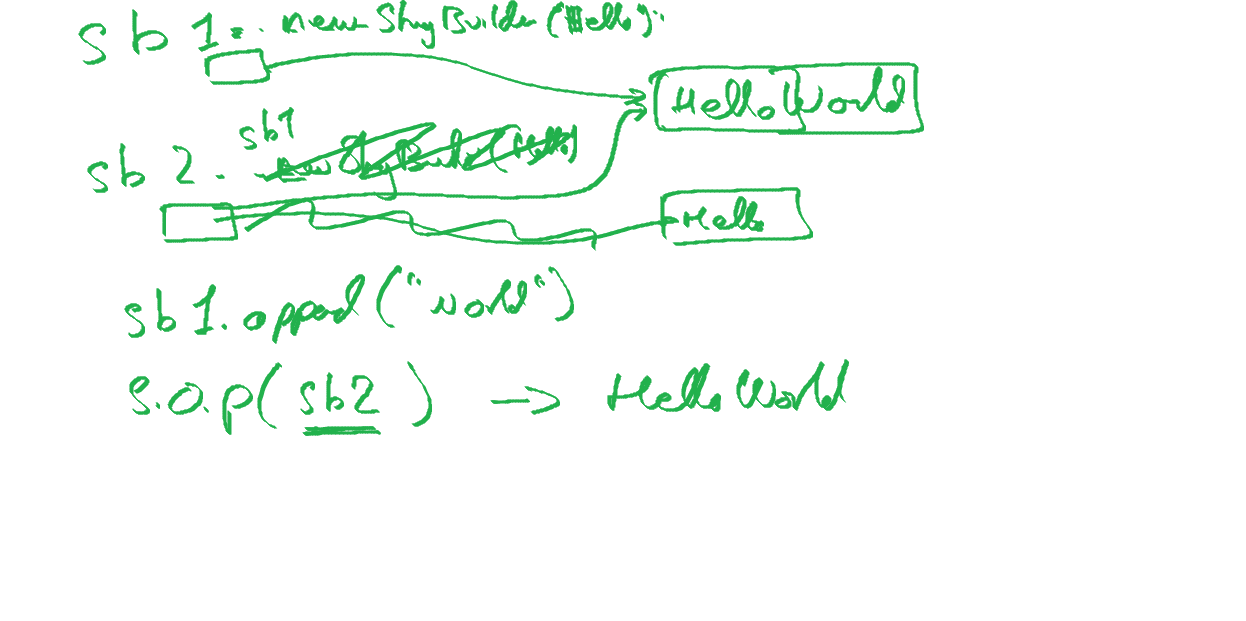 sb 1 = new StringBuilder (Hello)
Hello World
sb1
sb 2 = new StringBuilder (Hello)
Hello
sb1.append("world")
S.O.P(sb2) → Hello World